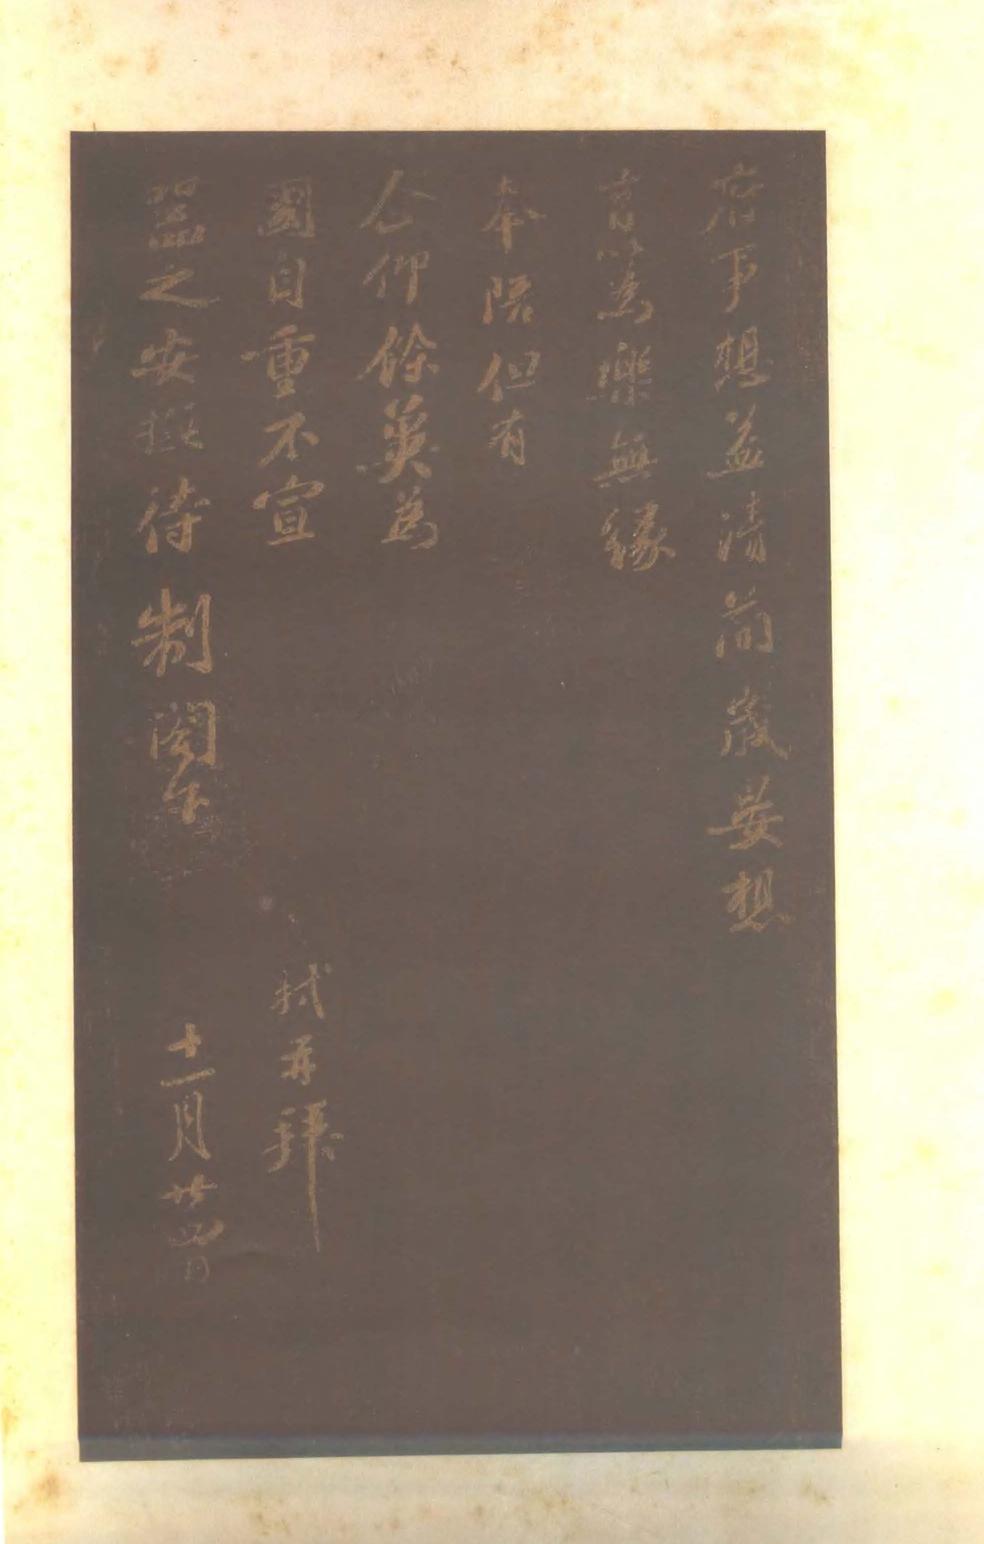 府事想益清簡歲晏想
有以為樂無緣
奉陪但有
企仰餘冀為
國自重不宣 軾再拜
器之安撫待制閣下 十一月廿四日